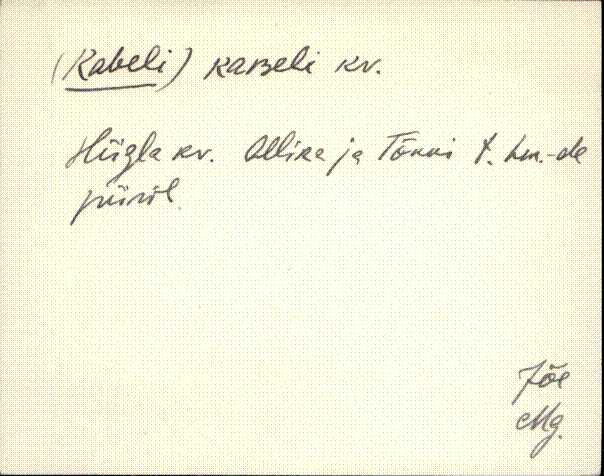 (Kabeli) kaʙeli kv.
Hüigla kv. Allika ja Tõnni t. hm.-de
piiril.
Jõe
Mg.